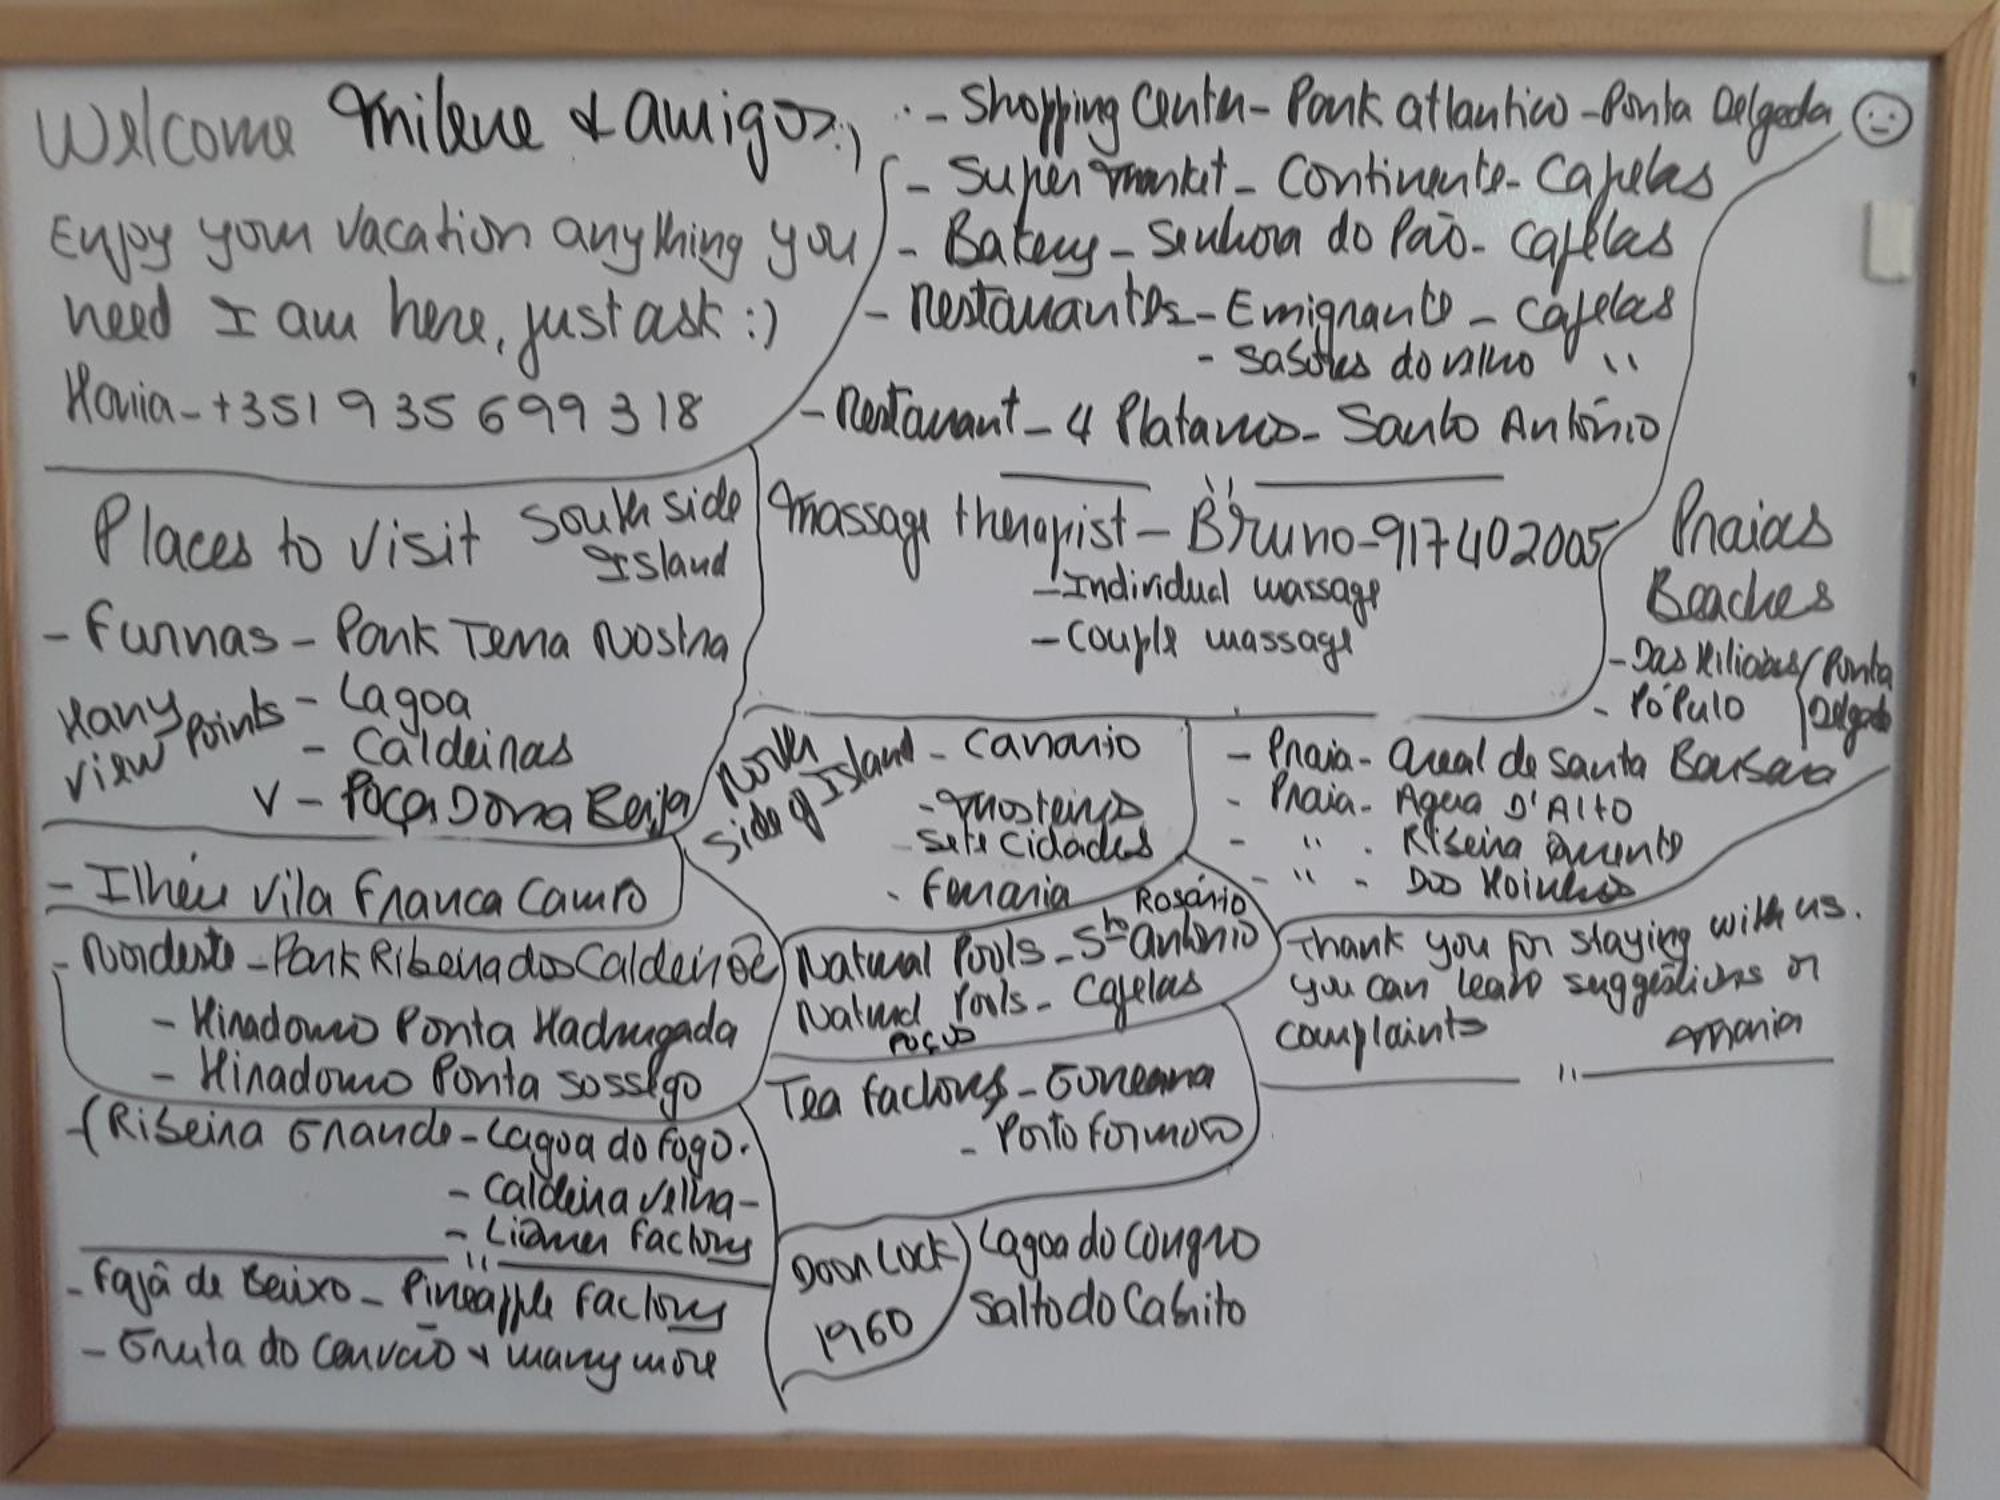 Welcome Milene & amigos :)
Enjoy your vacation anything you
need I am here, just ask :)
Maria - +351 935 699 318
- Shopping Center - Park atlantico - Ponta Delgada
- Super market - Continente - Capelas
- Bakery - Senhora do Pão - Capelas
- Restaurantes - Emigrante - Capelas
- Sabores do velho "
- Restaurant - 4 Platanos - Santo António
Places to visit South side
Island
- Furnas - Park Terra Nostra
Many view points
- Lagoa
- Caldeiras
V - Poça Dona Beija
- Ilhéu Vila Franca Campo
- Nordeste - Park Ribeira dos Caldeirões
- Miradouro Ponta Madrugada
- Miradouro Ponta Sossego
- (Ribeira Grande - Lagoa do Fogo.
- Caldeira Velha -
- Liquer Factory
"
- Fajã de Baixo - Pineapple Factory
- Gruta do Carvão & many more
Massage therapist - Bruno - 917402005
- Individual massage
- Couple massage
North
side of Island
- Canario
- Mosteiros
- Sete Cidades
- Ferraria
Natural Pools - Sto António
Rosário
Natural Pools - Capelas
Poços
Tea Factory - Gorreana
- Porto Formoso
Door Lock
1960
Lagoa do Congro
Salto do Cabrito
Praias
Beaches
- Das Milicias / Ponta
- Pópulo / Delgada
- Praia - Areal de Santa Barbara
- Praia - Agua D'Alto
- " - Ribeira Quente
- " - Dos Moinhos
Thank you for staying with us.
you can leave suggestions or
complaints Maria
"